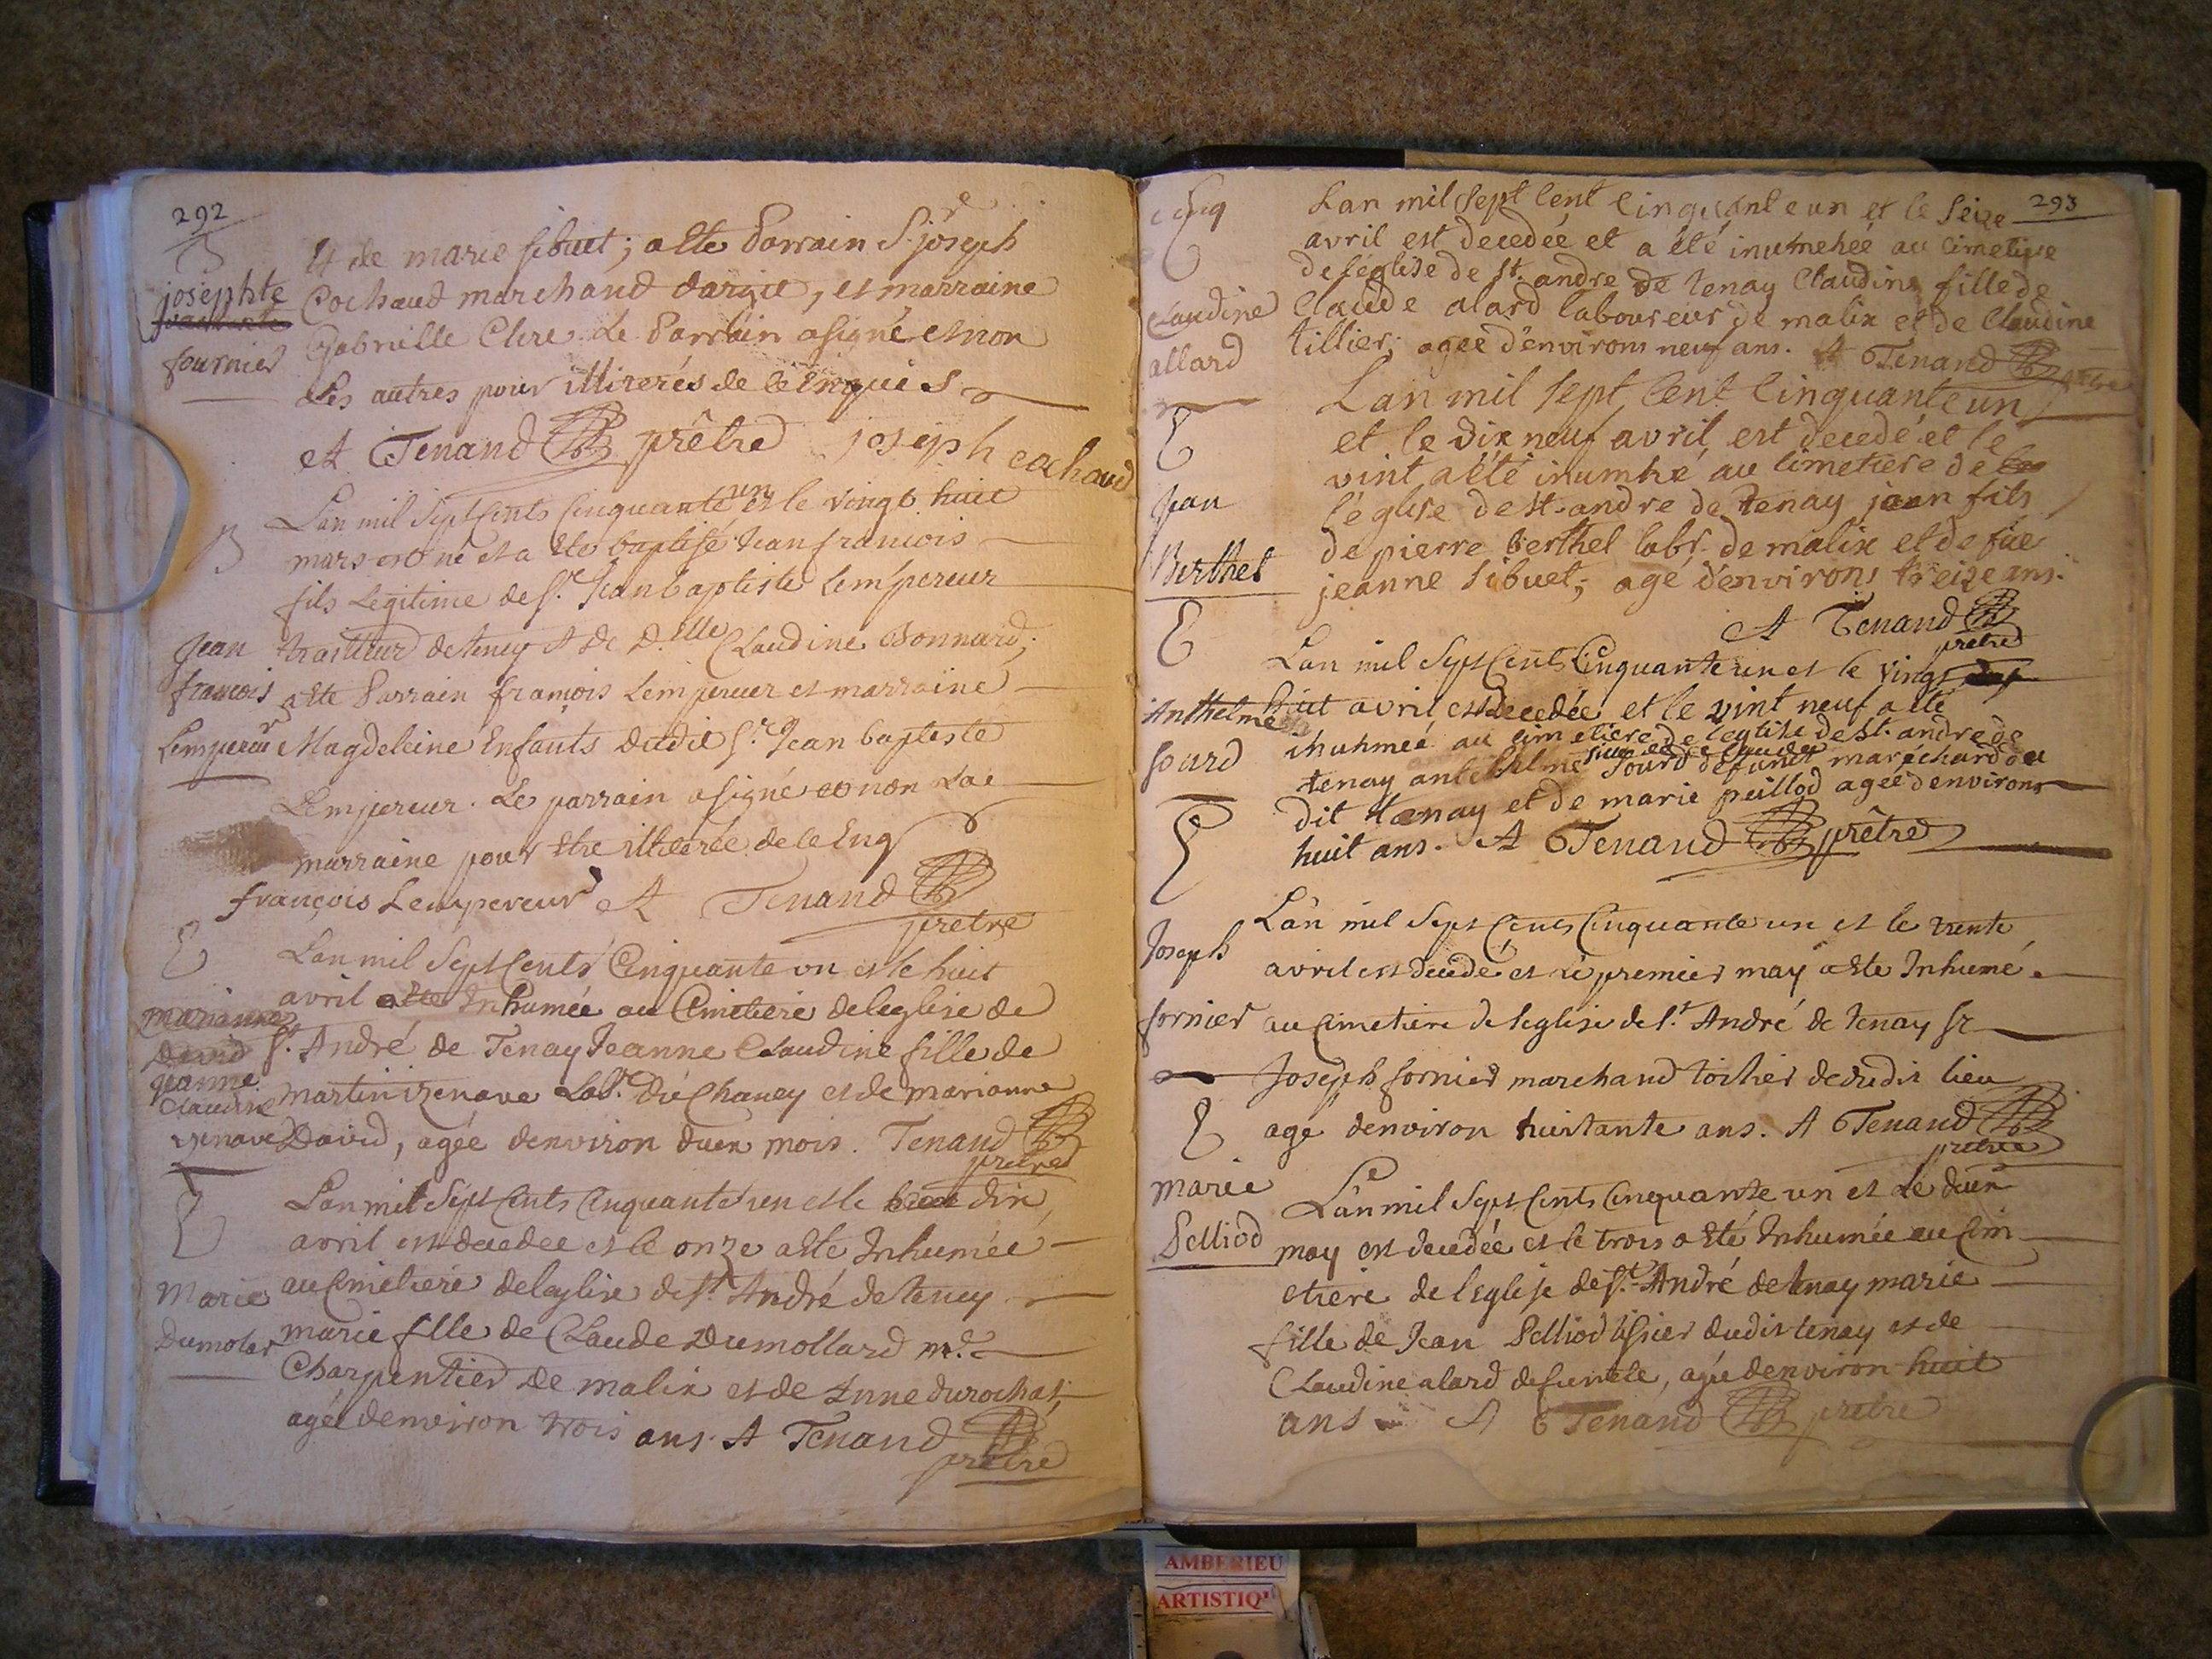 292
B
josephte
fournier
et de marie sibuet; a ete Parrain Sr joseph
Cochaud marchand dargit, et marraine
Gabrielle Clere. Le Parrain a signé et non
Les autres pour illiterés de ce Enquis
A Tenand prêtre joseph cochaud
B
Jean
francois
Lempereur
Lan mil Sept Cents Cinquante un et le vingt huit
mars est né et a ete baptisé Jean francois
fils Legitime de sr. Jean baptiste Lempereur
traitteur de tenay & de D.elle Claudine Bonnard;
a ete Parrain francois Lempereur et marraine
Magdeleine Enfants dudit Sr. Jean baptiste
Lempereur. Le parrain a signé et non La
marraine pour etre illiterée de ce Enq
françois Lempereur A Tenand
pretre
E
marianne
david
jeanne
Claudine
izenave
Lan mil Sept Cents Cinquante un et le huit
avril a ete Inhumée au Cimetiere de leglise de
St. André de Tenay Jeanne Claudine fille de
martin izenave Labr. du Chaney et de marianne
David, agée denviron dun mois. Tenand
pretre
E
Marie
Dumolar
Lan mil Sept Cents Cinquante un et le dix
avril est decedee et le onze a ete Inhumée
au Cimetiere de leglise de St André de tenay
marie fille de Claude Dumollard me.
Charpentier de malix et de Anne durochat,
agée denviron trois ans. A Tenand
prêtre
293
Enq
E
Claudine
allard
Lan mil sept cent cinquante un et le Seize
avril est decedée et a été inumehée au cimetiere
de l'église de st. andre de tenay Claudine fille de
Claude alard laboureur de malix et de Claudine
tillier; agée d'environs neuf ans. A Tenand
prêtre
E
Jean
Berthet
Lan mil sept cent cinquante un
et le dix neuf avril est decedé et le
vint a été inumhé au cimetiere de
l'église de st. andre de tenay jean fils
de pierre berthet labr. de malix et de fue
jeanne sibuet; agé d'environs treize ans.
A Tenand
prêtre
E
Anthelme
sourd
Lan mil Sept Cents Cinquante un et le vingt
huit avril est decedée et le vint neuf a ete
inuhmeé au cimetiere de leglise de st. andre de
tenay anthelme sourd defunct maréchard du
dit tenay et de marie peillod agée denvirons
huit ans. A Tenand prêtre
E
Joseph
fornier
Lan mil Sept Cents Cinquante un et le trente
avril est decedé et le premier may a ete Inhumé
au Cimetiere de leglise de St. André de tenay sr
Joseph fornier marchand toilier dedudit lieu
age denviron huitante ans. A Tenand
pretre
E
marie
Pelliod
Lan mil Sept Cents Cinquante un et Le deux
may est decedée et le trois a eté Inhumée au Cim
etiere de leglise de St. André de tenay marie
fille de Jean Pelliod tissier dudit tenay et de
Claudine alard defuncte, agée denviron huit
ans A Tenand prêtre
AMBERIEU
ARTISTIQ